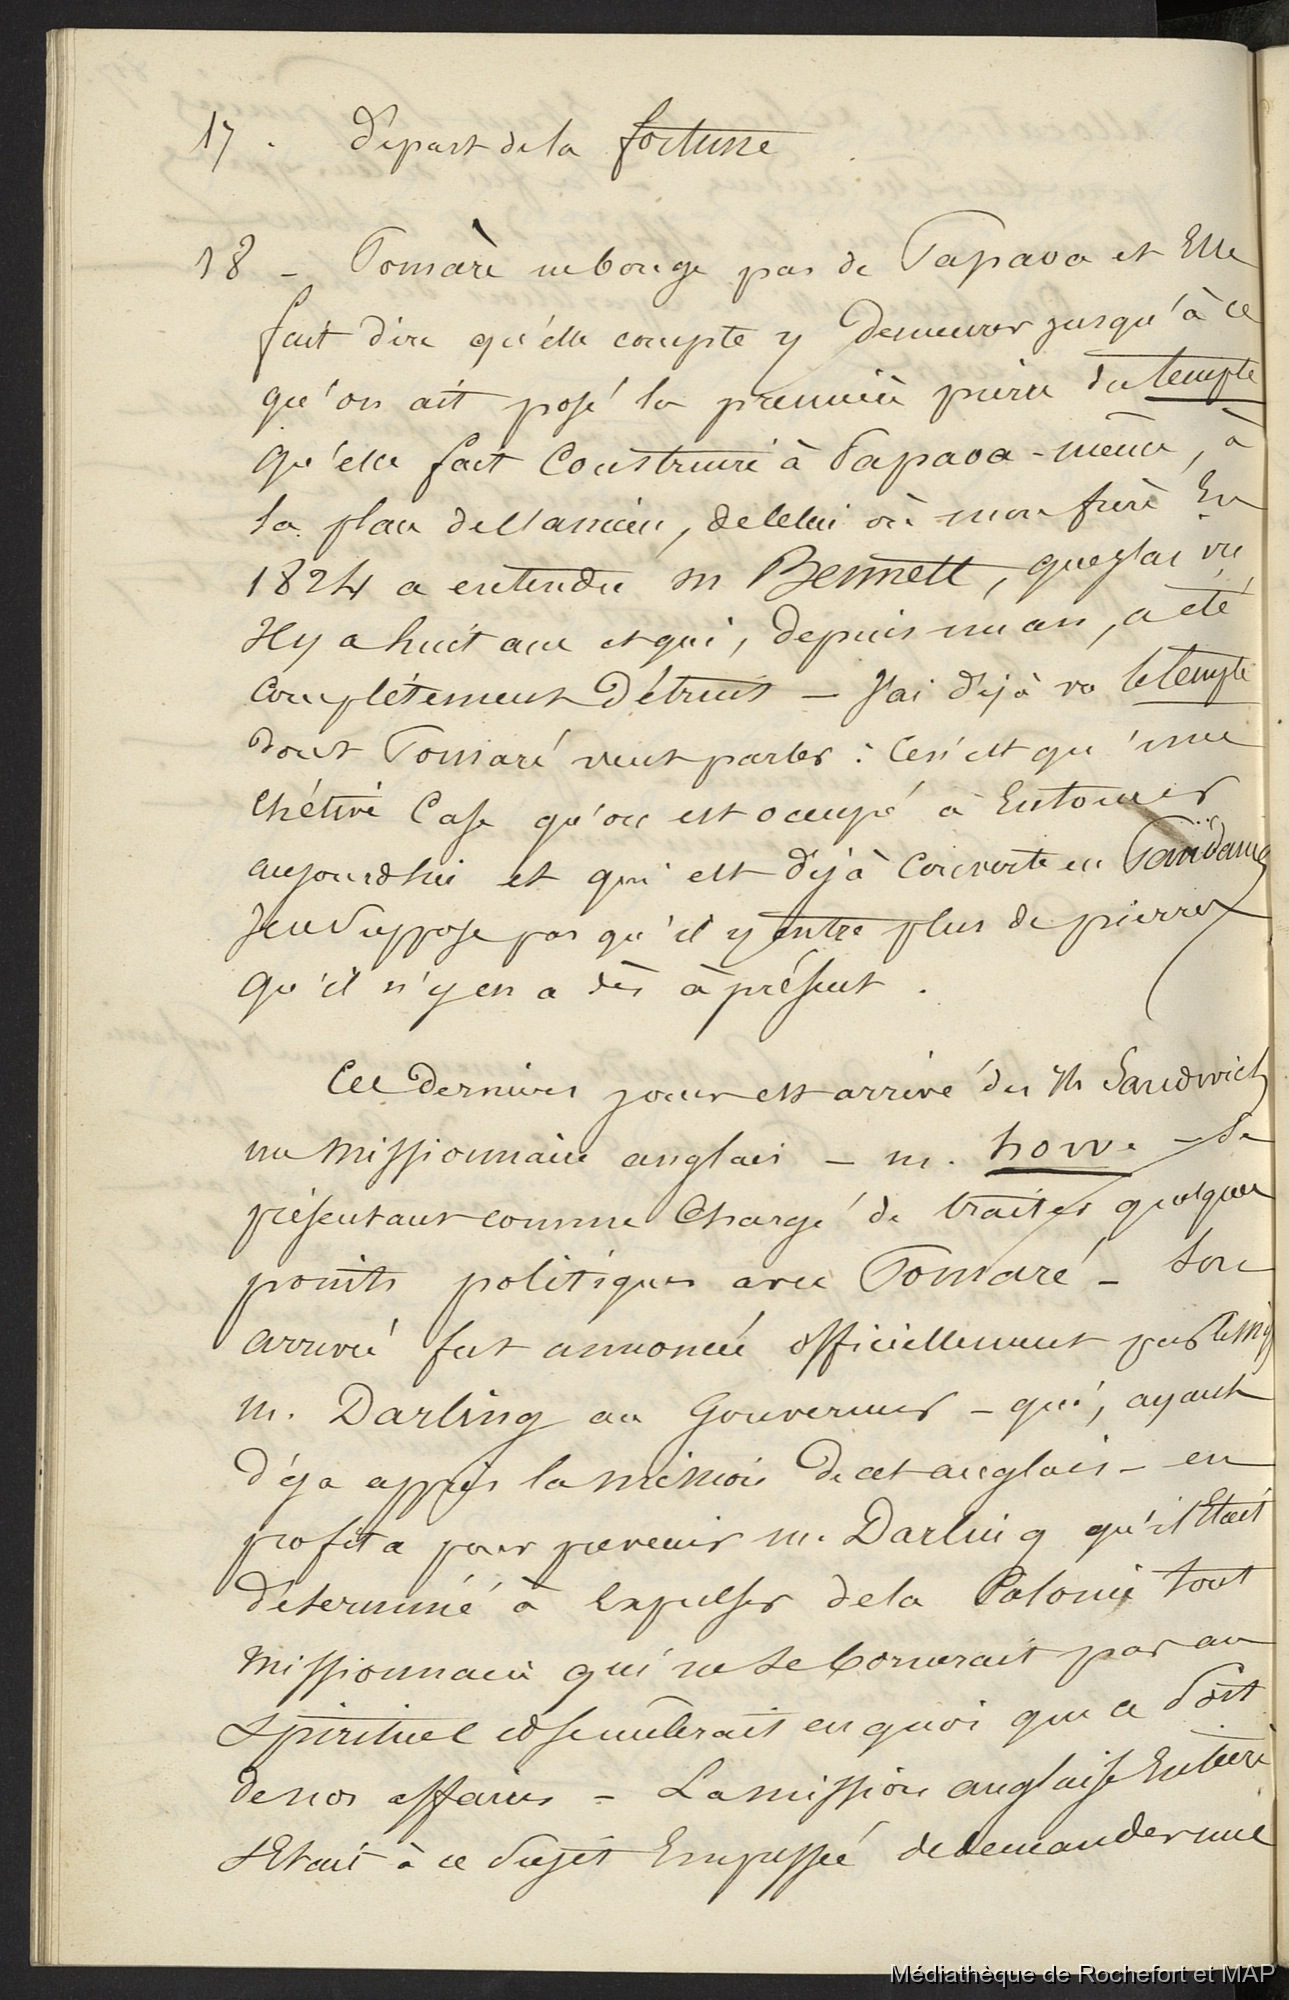 17. Départ de la fortune
18 - Pomaré ne bouge pas de Papaoa et Elle
fait dire qu'elle compte y demeurer jusqu'à ce
qu'on ait posé la première pierre du temple
qu'elle fait Construire à Papaoa-même, à
la place de l'ancien, de celui où mon frère En
1824 a entendu M Bennett, que j'ai vu
Il y a huit ans et qui, depuis un an, a été
complétement Détruit - J'ai déjà vu le temple
dont Pomaré veut parler : Ce n'est qu'une
chétive Case qu'on est occupé à Entourer
aujourdhui et qui est déjà couverte en
Je ne suppose pas qu'il y entre plus de pierres
qu'il n'y en a dès à présent.
Ces derniers jours est arrivé des Is Sandwich
un missionnaire anglais - m. howe - se
présentant comme Chargé de traiter quelques
points politiques avec Pomaré - Son
arrivée fut annoncée officiellement par le
m. Darling au Gouverneur - qui, ayant
déja appris la mission de cet anglais - en
profita pour prevenir m. Darling qu'il Etait
déterminé à Expulser de la Colonie tout
missionnaire qui ne se bornerait pas au
spirituel et se mêlerait en quoi que ce soit
de nos affaires - La mission anglaise Entière
s'Etait à ce sujet Empressée de demander une
Médiathèque de Rochefort et MAP